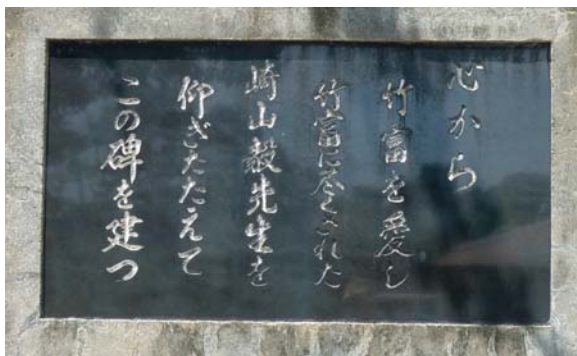 心から
竹富を愛し
竹富に尽くされた
崎山毅先生を
仰ぎたたえて
この碑を建つ